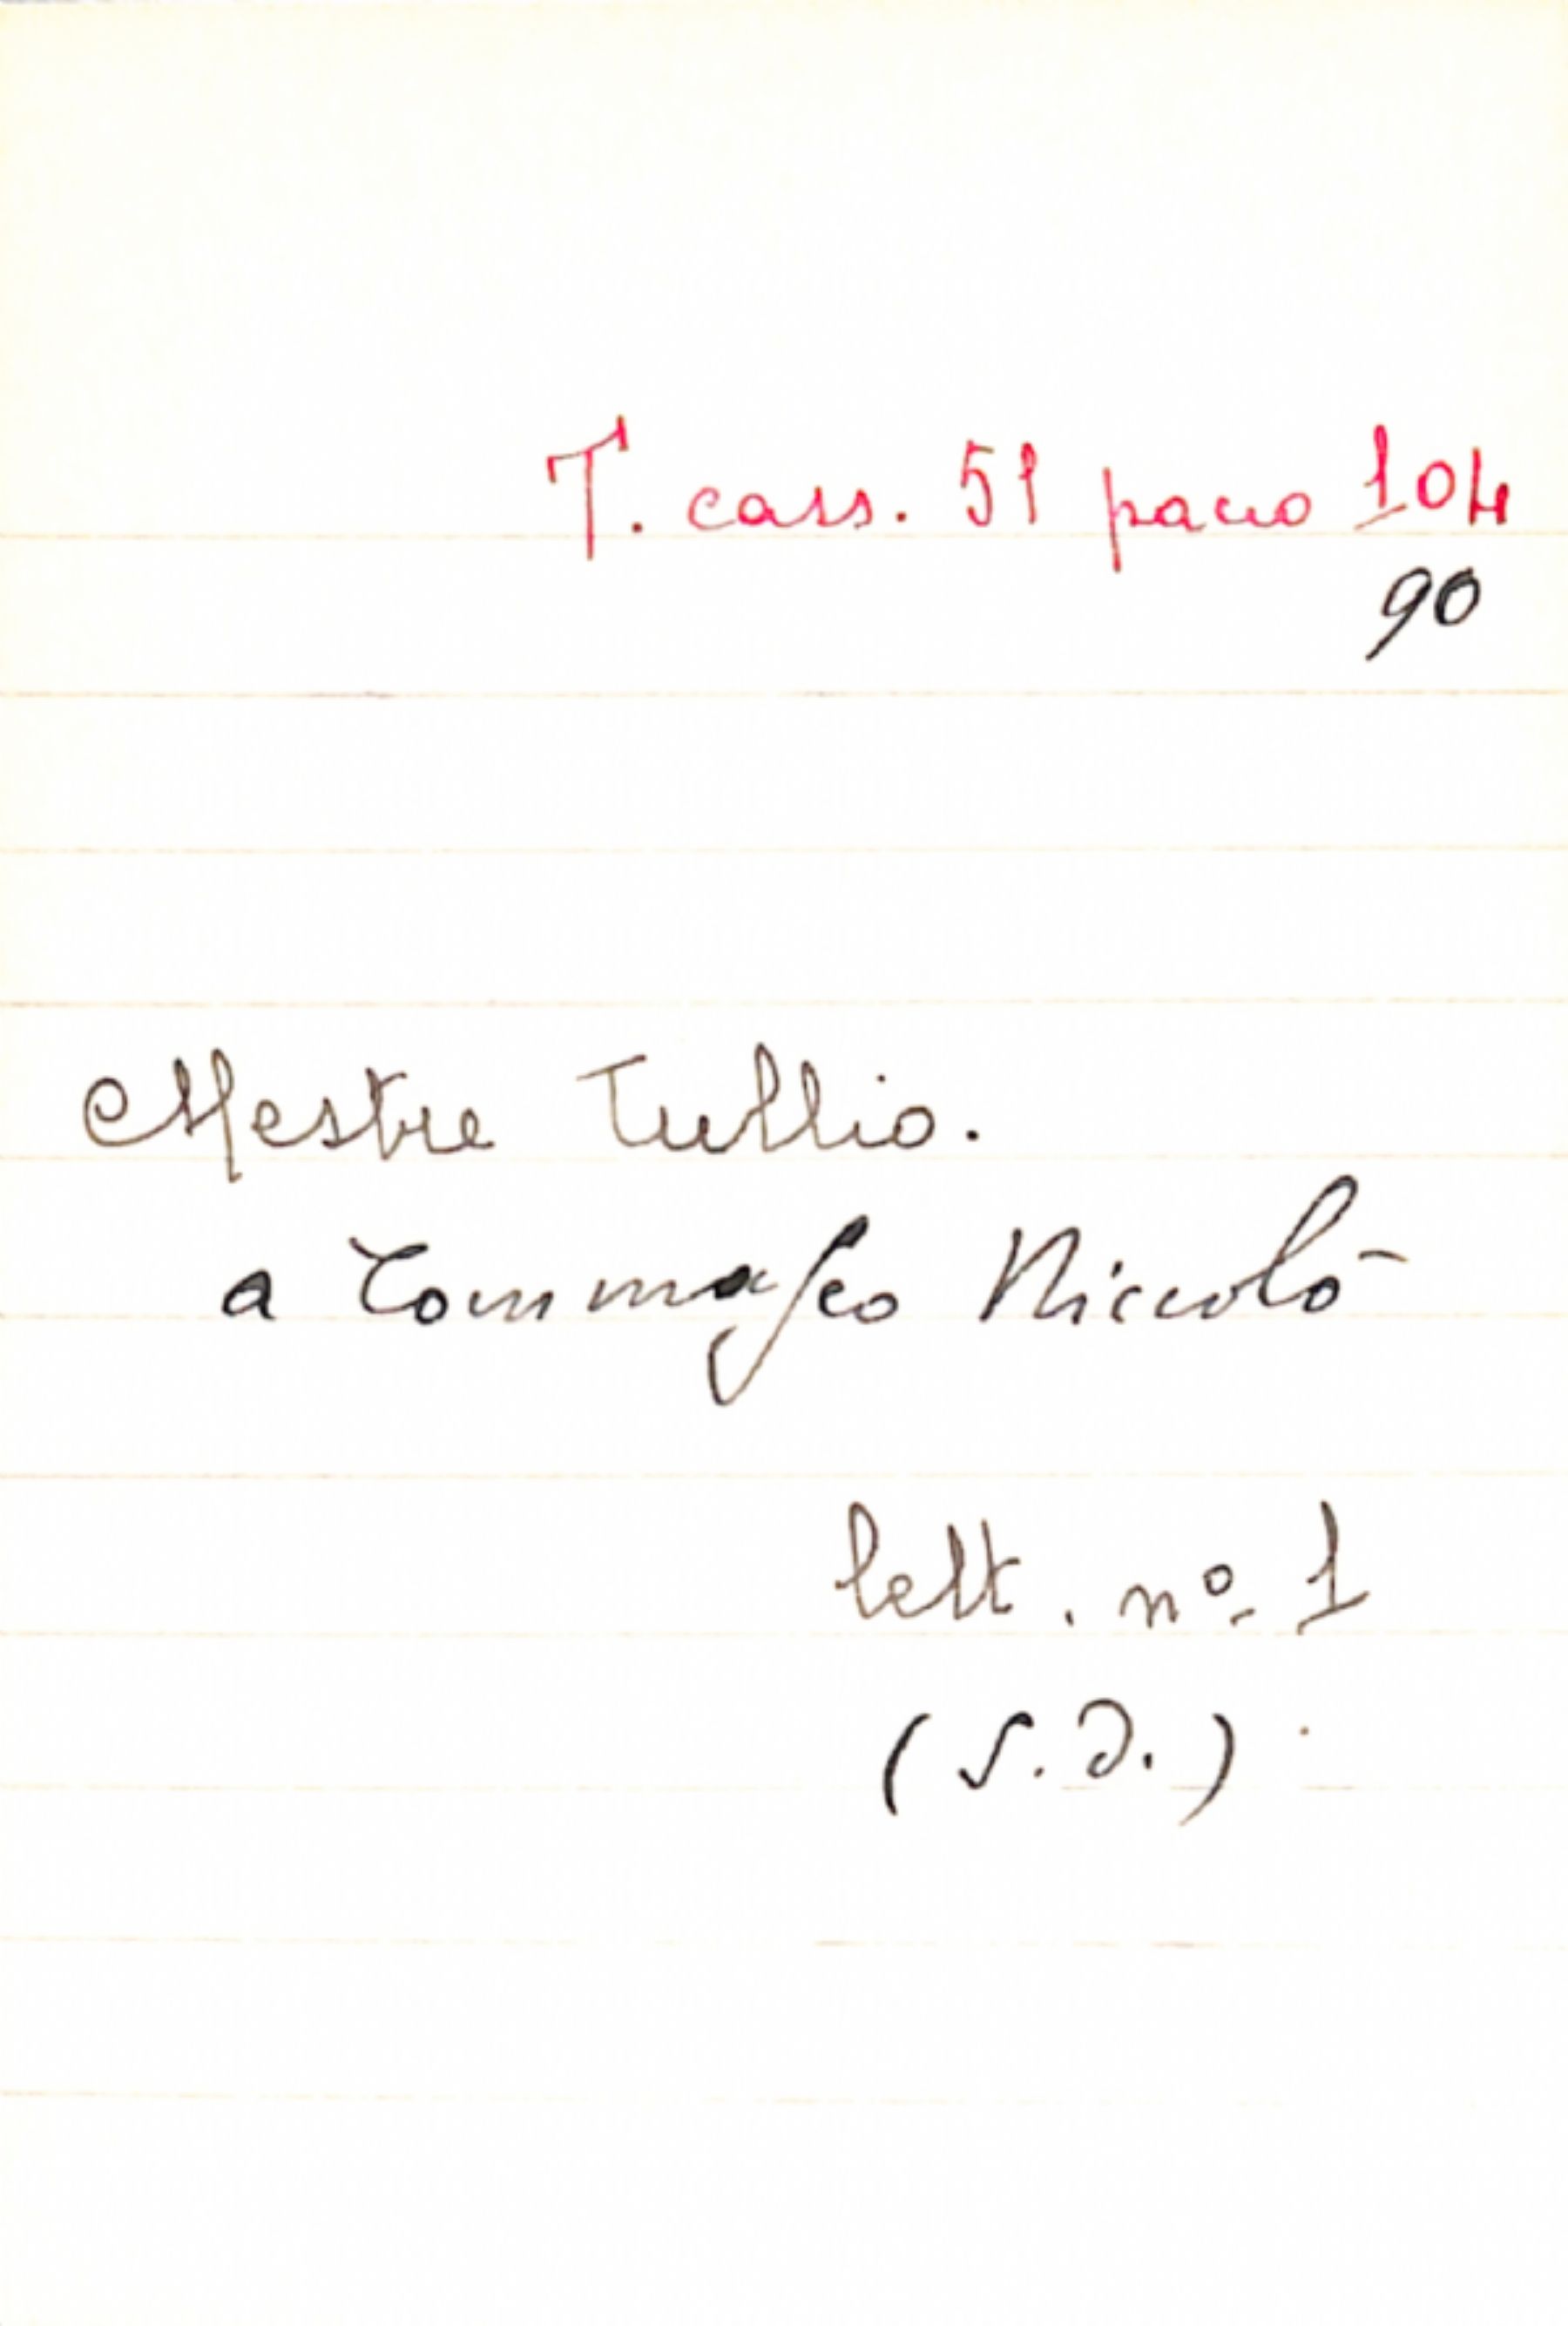 T. cass. 51 pacco 104
90
Mestre Tullio.
a Tommaseo Niccolò
lett. nº 1
(S.D.)